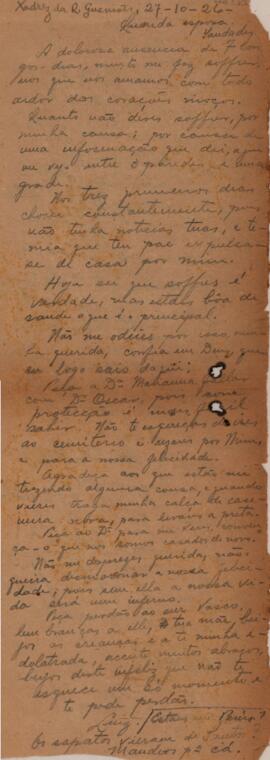 Xadrez da R. Gusmões, 27-10-26-
Querida esposa.
Saudades
A dolorosa ausencia de 7 lon-
gos dias, muito me faz soffrer,
nós que nos amamos com todo
ardor dos corações moços.
Quanto não deves soffrer, por
minha causa; por causa de
uma informação que dei, aqui
me vejo entre 3 paredes e uma
grade.
Nos tres primeiros dias
chorei constantemente, pois
não tinha noticias tuas, e te-
mia que teu pae expulsas-
se de casa por mim.
Hoje sei que soffres é
verdade, mas estás bôa de
saude o que é o principal.
Não me odeies por isso, mi-
nha querida, confia em Deus, que
eu logo saio daqui;
Peça a Dª Mahanna fallar
com Dr Oscar, pois
protecção é mais facil
sahir. Não te esqueças de ires
ao cemiterio e rezares por Mim,
e para a nossa felicidade.
Agradeça aos que estão me
trazendo alguma cousa, e quando
vieres traga minha calça de case-
mira nova, para levares a preta.
Peça ao Dr para me veres,
que nós somos casados de novo.
Não me desprezes, querida, não
queira desmoronar a nossa felici-
dade; pois sem ella a nossa vi-
da será um inferno.
Peça perdão ao seu Vasco,
lembranças a elle, tua mãe, bei-
jos as creanças e a ti minha i-
dolatrada, acceite muitos abraços,
beijos deste infeliz que não te
esquece um só momento e
te pede perdão.
Os sapatos vieram de Santos
Mandeos pª cá.